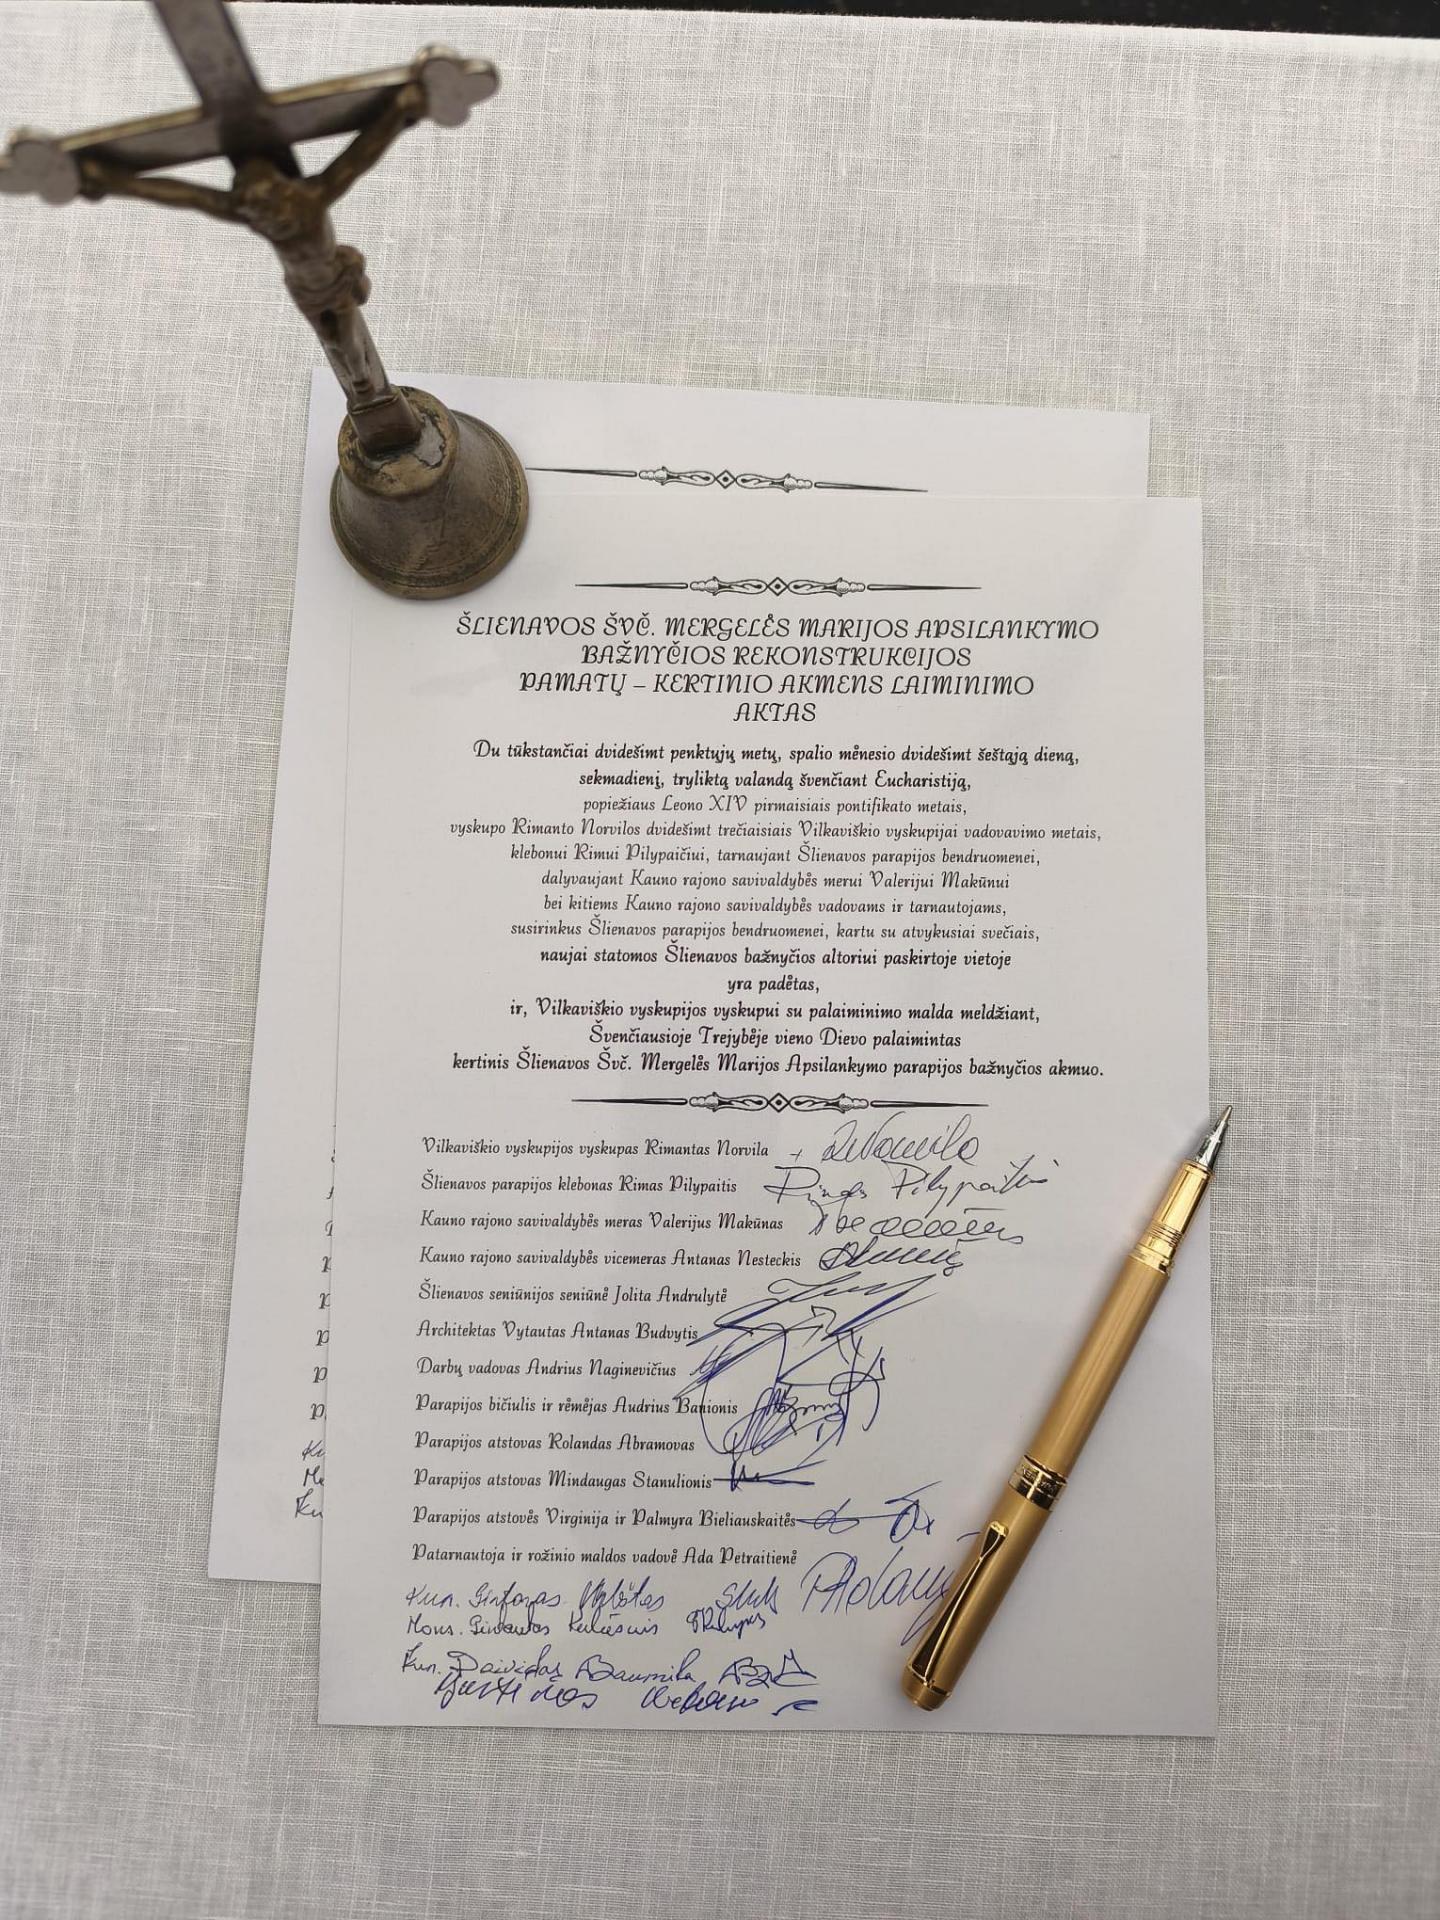 ŠLIENAVOS ŠVČ. MERGELĖS MARIJOS APSILANKYMO
BAŽNYČIOS REKONSTRUKCIJOS
PAMATŲ – KERTINIO AKMENS LAIMINIMO
AKTAS
Du tūkstančiai dvidešimt penktųjų metų, spalio mėnesio dvidešimt šeštąją dieną,
sekmadienį, tryliktą valandą švenčiant Eucharistiją,
popiežiaus Leono XIV pirmaisiais pontifikato metais,
vyskupo Rimanto Norvilos dvidešimt trečiaisiais Vilkaviškio vyskupijai vadovavimo metais,
klebonui Rimui Pilypaičiui, tarnaujant Šlienavos parapijos bendruomenei,
dalyvaujant Kauno rajono savivaldybės merui Valerijui Makūnui
bei kitiems Kauno rajono savivaldybės vadovams ir tarnautojams,
susirinkus Šlienavos parapijos bendruomenei, kartu su atvykusiai svečiais,
naujai statomos Šlienavos bažnyčios altoriui paskirtoje vietoje
yra padėtas,
ir, Vilkaviškio vyskupijos vyskupui su palaiminimo malda meldžiant,
Švenčiausioje Trejybėje vieno Dievo palaimintas
kertinis Šlienavos Švč. Mergelės Marijos Apsilankymo parapijos bažnyčios akmuo.
Vilkaviškio vyskupijos vyskupas Rimantas Norvila
Šlienavos parapijos klebonas Rimas Pilypaitis Rimas Pilypaitis
Kauno rajono savivaldybės meras Valerijus Makūnas
Kauno rajono savivaldybės vicemeras Antanas Nesteckis
Šlienavos seniūnijos seniūnė Jolita Andrulytė
Architektas Vytautas Antanas Budvytis
Darbų vadovas Andrius Naginevičius
Parapijos bičiulis ir rėmėjas Audrius Banionis
Parapijos atstovas Rolandas Abramovas
Parapijos atstovas Mindaugas Stanulionis
Parapijos atstovės Virginija ir Palmyra Bieliauskaitės
Patarnautoja ir rožinio maldos vadovė Ada Petraitienė
Kun. Gintaras
Mons. Gintautas
Kun. Dovidas